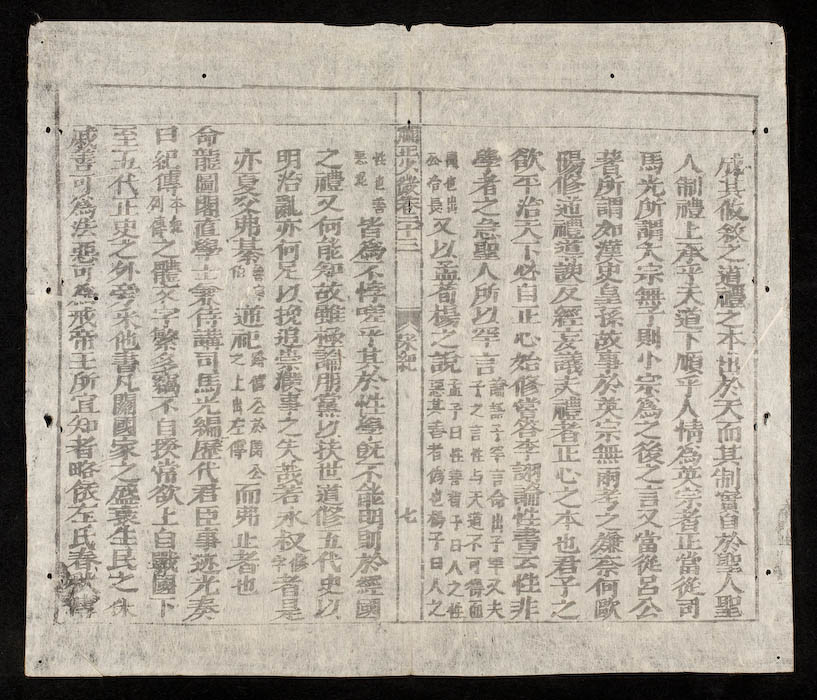 成其倫敘之道禮之本出於天而其制實自於聖人聖
人制禮上承乎天道下順乎人情為英宗者正當從司
馬光所謂大宗無子則小宗為之後之言又當從呂公
著所謂如漢史皇孫故事於英宗無兩考之嫌奈何歐
陽修逆禮導諛反經妄議夫禮者正心之本也君子之
欲平治天下必自正心始修嘗答李詡論性書云性非
學者之急聖人所以罕言論語子罕言命出子罕又夫子之言性与天道不可得而聞也出公冶長又以孟荀楊之說孟子曰性善荀子曰人之性惡其善者偽也楊子曰人之
性也善惡混皆為不悖嗟乎其於性學旣不能明則於經國
之禮又何能知故雖極論朋黨以扶世道修五代史以
明治亂亦何足以挽追崇濮事之失哉若永叔修字者是
亦夏父弗綦魯宗伯逆祀躋僖公於閔公之上出左傳而弗止者也
命龍圖閣直學士兼侍講司馬光編歷代君臣事迹光奏
曰紀傳本紀列傳之體文字繁多竊不自揆常欲上自戰國下
至五代正史之外旁采他書凡關國家之盛衰生民之休
戚善可為法惡可為戒帝王所宜知者略依左氏春秋傳
卷二十三
宋紀
七